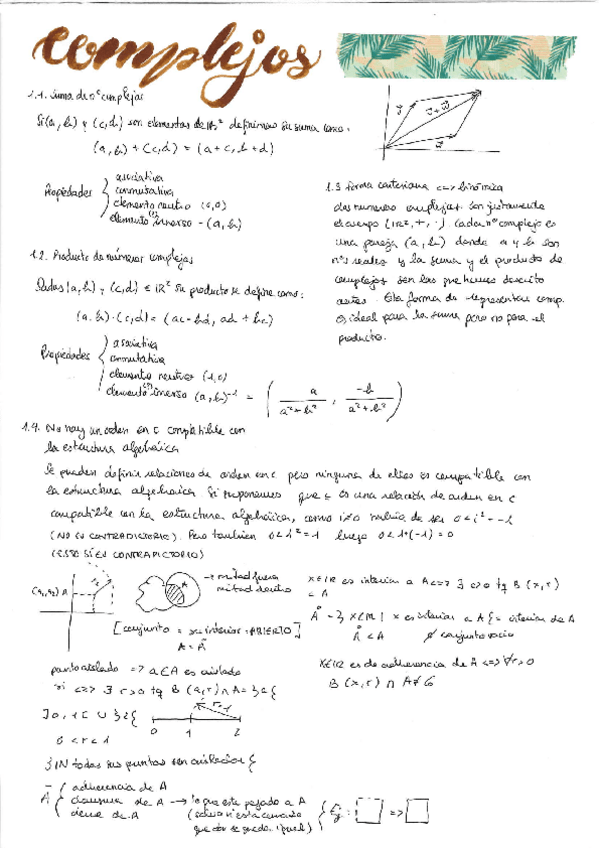 complejos
1.1. Suma de nº complejos
Si (a, b) y (c, d) son elementos de IR² definimos su suma como:
(a, b) + (c, d) = (a + c, b + d)
Propiedades
asociativa
conmutativa
elemento neutro (0,0)
elemento inverso - (a, b)
1.2. Producto de números complejos
Dados (a, b) y (c, d) ∈ IR² su producto se define como:
(a, b) · (c, d) = (ac - bd, ad + bc)
Propiedades
asociativa
conmutativa
elemento neutro (1,0)
elemento inverso (a, b)⁻¹ = ( a / a² + b² , -b / a² + b² )
1.3 forma cartesiana <=> binómica
Los números complejos son justamente
el cuerpo (IR², +, ·). Cada nº complejo es
una pareja (a, b) donde a y b son
nºs reales y la suma y el producto de
complejos son los que hemos descrito
antes. Esta forma de representar comp.
es ideal para la suma pero no para el
producto.
1.4. No hay un orden en C compatible con
la estructura algebraica
Se pueden definir relaciones de orden en C pero ninguna de ellas es compatible con
la estructura algebraica. Si suponemos que ≤ es una relación de orden en C
compatible con la estructura algebraica, como i≠0 habría de ser 0 < i² = -1
(NO ES CONTRADICTORIO). Pero también 0 < 1² = 1 luego 0 < 1·(-1) = 0
(ESTO SÍ ES CONTRADICTORIO)
(a₁, a₂) A
→ mitad fuera
mitad dentro
[conjunto = su interior: ABIERTO]
A = Å
punto aislado => a ∈ A es aislado
si <=> ∃ r > 0 tq B (a, r) ∩ A = {a}
]0, 1[ ∪ {2}
0 1 2
r = 1
0 < r < 1
{IN todos sus puntos son aislados}
x ∈ IR es interior a A <=> ∃ r > 0 tq B (x, r)
⊂ A
Å = {x ∈ IR | x es interior a A} = interior de A
Å ⊂ A ∅ conjunto vacío
x ∈ IR es de adherencia de A <=> ∀r > 0
B (x, r) ∩ A ≠ ∅
A
adherencia de A
clausura de A → lo que está pegado a A
cierre de A
que dar se queda igual)
Ej: □ => □